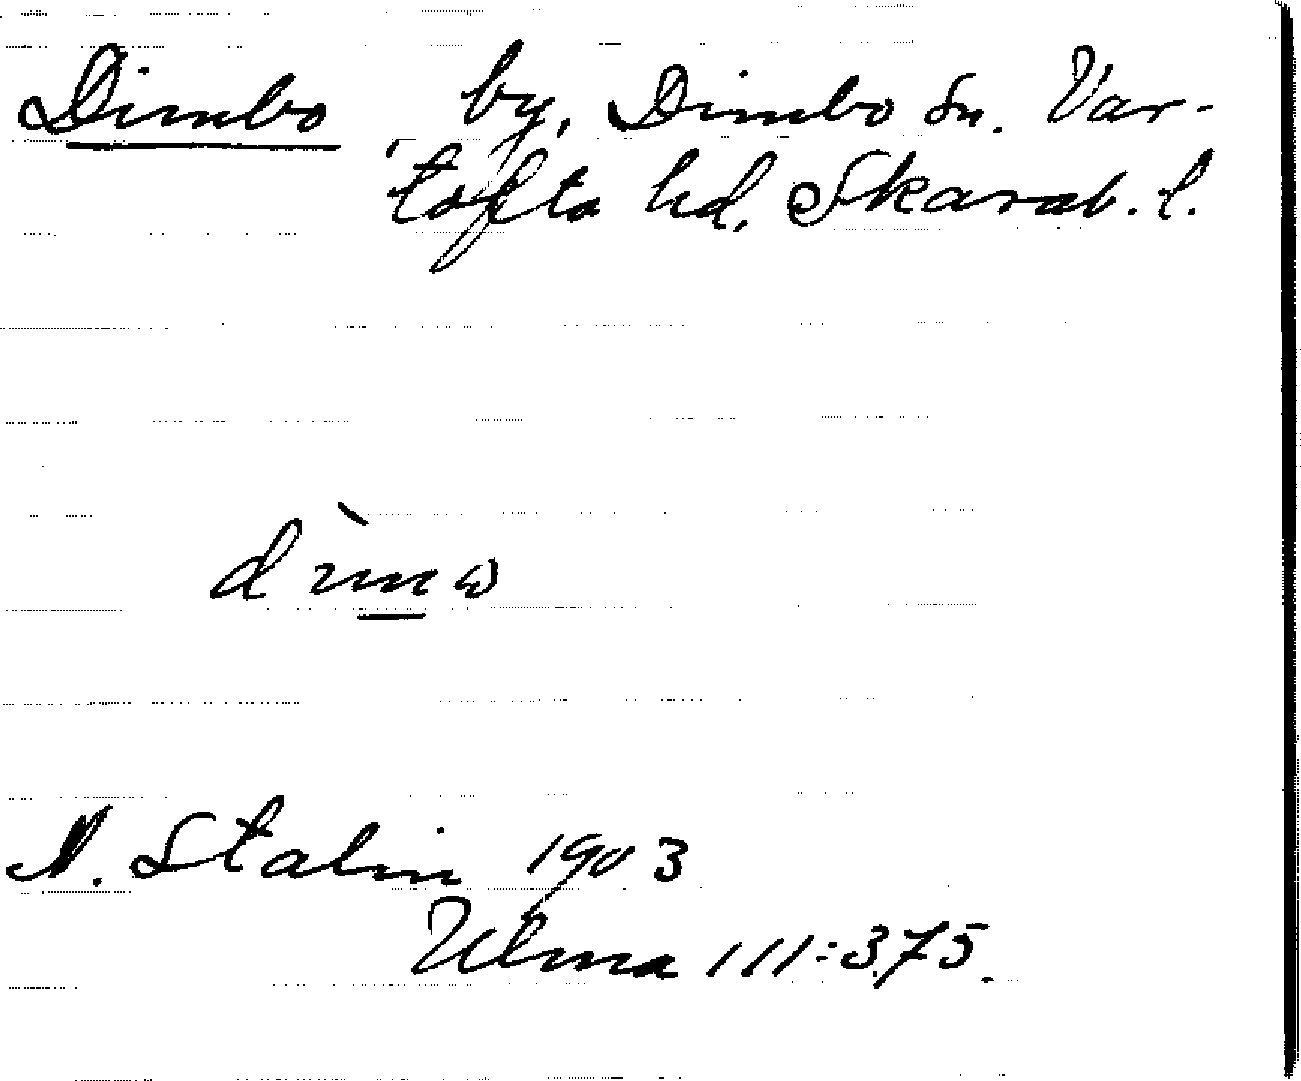 Dimbo by, Dimbo sn. Var-
tofta hd, Skarab. l.
N. Stalin 1903
Ulma 111:375.